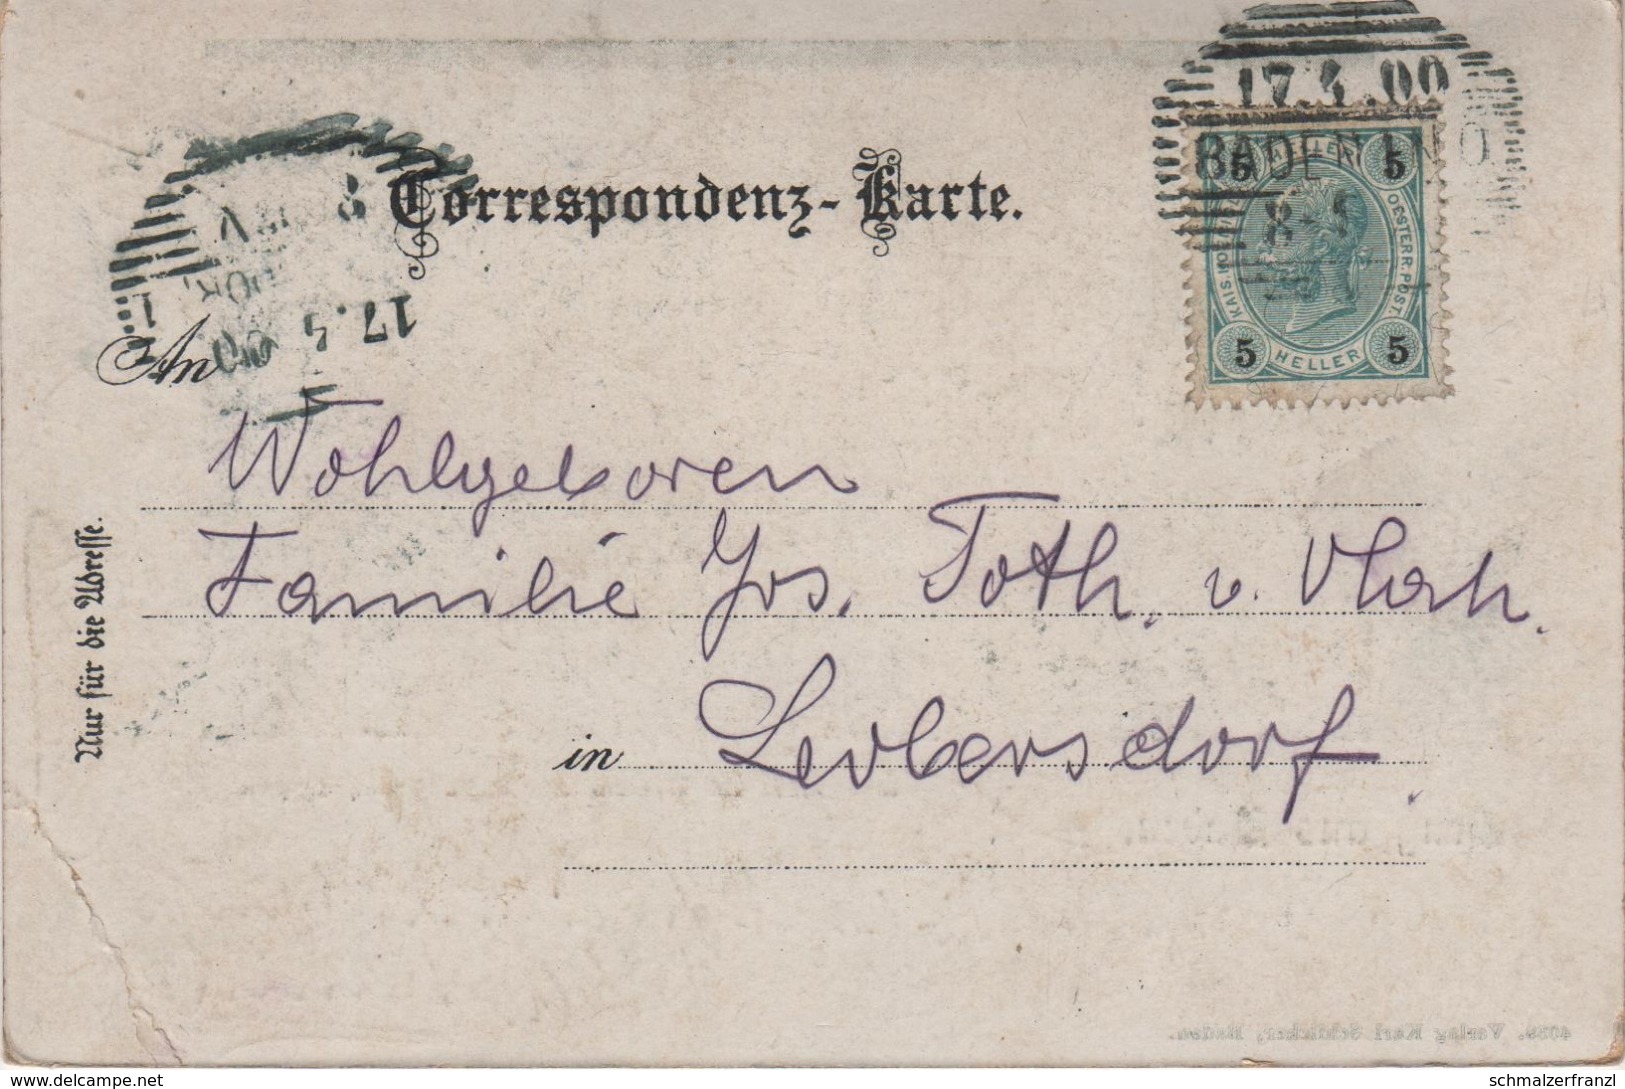 17.4.00
BADEN N.Ö.
8-
5 HELLER 5
KAIS. KOENIGL. OESTERR. POST.
5 HELLER 5
Correspondenz-Karte.
17.4 00
An
Wohlgeboren
Familie Jos. Toth. v. Vlah.
in Leobersdorf.
Nur für die Adresse.
Verlag Karl Schücker, Baden.
https://www.delcampe.net
schmalzerfranzl